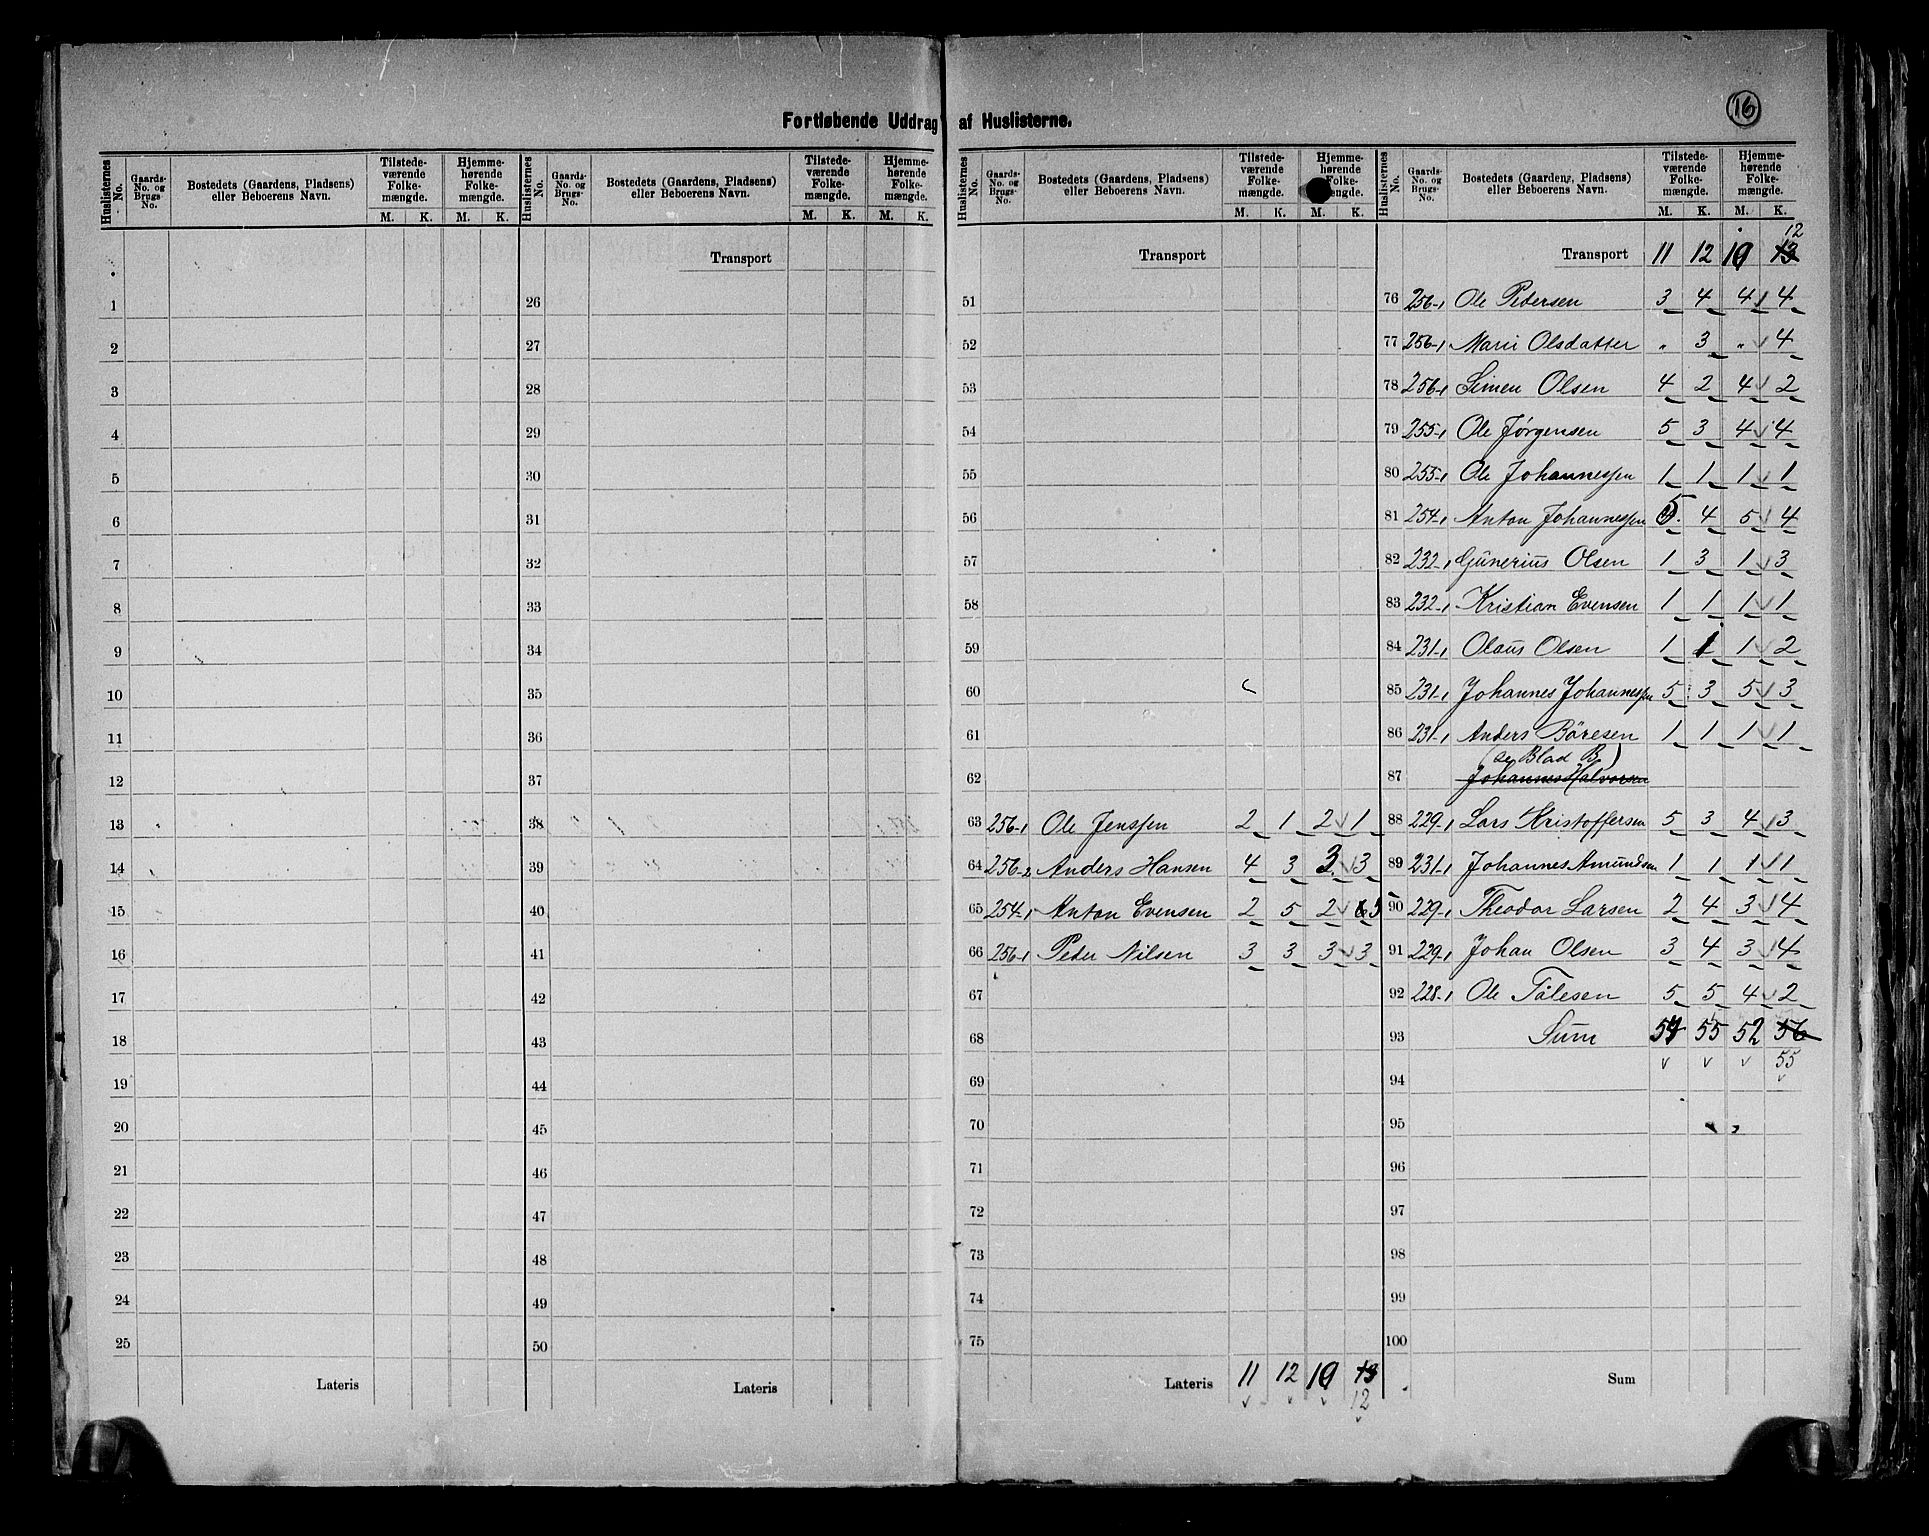 16
Fortløbende Uddrag af Huslisterne.
Huslisternes No. | Gaards-No. og Brugs-No. | Bostedets (Gaardens, Pladsens) eller Beboerens Navn. | Tilstedeværende Folkemængde. M. K. | Hjemmehørende Folkemængde. M. K.
Huslisternes No. | Gaards-No. og Brugs-No. | Bostedets (Gaardens, Pladsens) eller Beboerens Navn. | Tilstedeværende Folkemængde. M. K. | Hjemmehørende Folkemængde. M. K.
Huslisternes No. | Gaards-No. og Brugs-No. | Bostedets (Gaardens, Pladsens) eller Beboerens Navn. | Tilstedeværende Folkemængde. M. K. | Hjemmehørende Folkemængde. M. K.
Huslisternes No. | Gaards-No. og Brugs-No. | Bostedets (Gaardens, Pladsens) eller Beboerens Navn. | Tilstedeværende Folkemængde. M. K. | Hjemmehørende Folkemængde. M. K.
1
2
3
4
5
6
7
8
9
10
11
12
13
14
15
16
17
18
19
20
21
22
23
24
25
Lateris
Transport
26
27
28
29
30
31
32
33
34
35
36
37
38
39
40
41
42
43
44
45
46
47
48
49
50
Lateris
Transport
51
52
53
54
55
56
57
58
59
60
61
62
63 256-1 Ole Jenssen 2 1 2 1
64 256-2 Anders Hansen 4 3 3 3
65 254-1 Anton Evensen 2 5 2 5
66 256-1 Peder Nilsen 3 3 3 3
67
68
69
70
71
72
73
74
75
Lateris 11 12 10 13
12
12
Transport 11 12 10 13
76 256-1 Ole Pedersen 3 4 4 4
77 256-1 Marie Olsdatter " 3 " 4
78 256-1 Simen Olsen 4 2 4 2
79 255-1 Ole Jørgensen 5 3 4 4
80 255-1 Ole Johannessen 1 1 1 1
81 254-1 Anton Johannessen 5 4 5 4
82 232-1 Gunerius Olsen 1 3 1 3
83 232-1 Kristian Evensen 1 1 1 1
84 231-1 Olaus Olsen 1 1 1 2
85 231-1 Johannes Johannessen 5 3 5 3
86 231-1 Anders Børesen 1 1 1 1
(se Blad B)
87 Johannes Halvorsen
88 229-1 Lars Kristoffersen 5 3 4 3
89 231-1 Johannes Amundsen 1 1 1 1
90 229-1 Theodor Larsen 2 4 3 4
91 229-1 Johan Olsen 3 4 3 4
92 228-1 Ole Tolesen 5 5 4 2
93 Sum 54 55 52 56
55
94
95
96
97
98
99
100
Sum